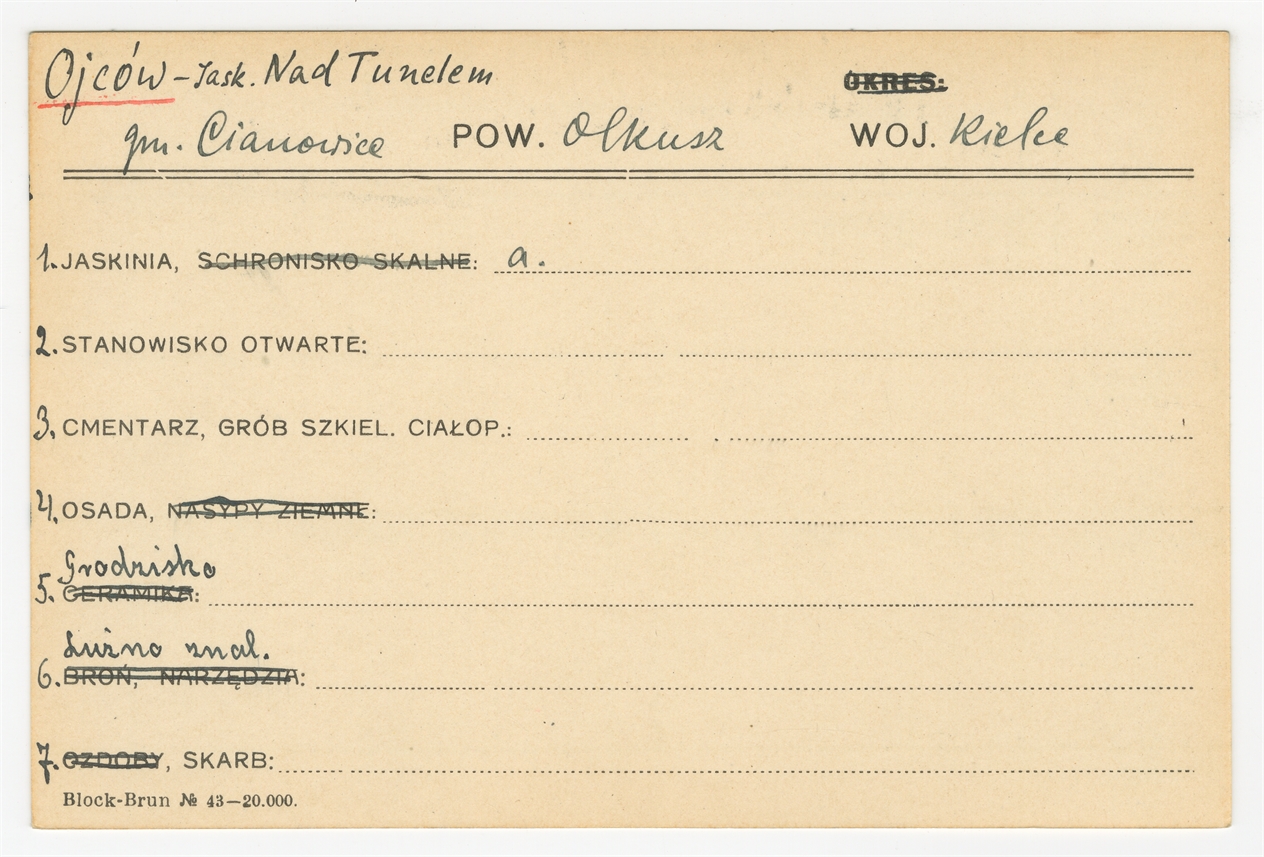 Ojców – Jask. Nad Tunelem
OKRES:
gm. Cianowice POW. Olkusz WOJ. Kielce
1. JASKINIA, SCHRONISKO SKALNE: a.
2. STANOWISKO OTWARTE:
3. CMENTARZ, GRÓB SZKIEL. CIAŁOP.:
4. OSADA, NASYPY ZIEMNE:
Grodzisko
5. CERAMIKA:
Luźno znal.
6. BROŃ, NARZĘDZIA:
7. OZDOBY, SKARB:
Block-Brun № 43—20.000.